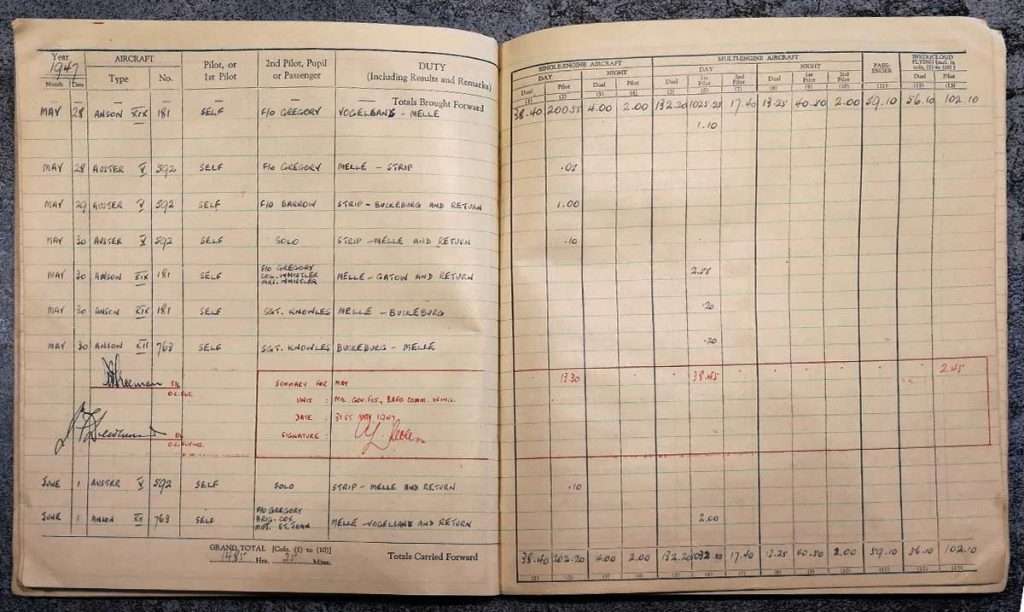 Year 1947
AIRCRAFT
Pilot, or 1st Pilot
2nd Pilot, Pupil or Passenger
DUTY (Including Results and Remarks)
Month Date Type No.
Totals Brought Forward
MAY 28 ANSON XIX 181 SELF F/O GREGORY - MELLE
MAY 28 AUSTER V 592 SELF F/O GREGORY MELLE - STRIP
MAY 29 AUSTER V 592 SELF F/O BARROW STRIP - BUCKEBURG AND RETURN
MAY 30 AUSTER V 592 SELF SOLO STRIP - MELLE AND RETURN
MAY 30 ANSON XIX 181 SELF F/O GREGORY WHISTLER WHISTLER MELLE - GATOW AND RETURN
MAY 30 ANSON XIX 181 SELF SGT. KNOWLES MELLE - BUCKEBURG
MAY 30 ANSON XII 763 SELF SGT. KNOWLES BUCKEBURG - MELLE
SUMMARY FOR : MAY
UNIT : COMM. WING.
DATE : 31ST MAY 1947
SIGNATURE :
JUNE 1 AUSTER V 592 SELF SOLO STRIP - MELLE AND RETURN
JUNE 1 ANSON XII 763 SELF F/O GREGORY MELLE - AND RETURN
GRAND TOTAL [Cols. (1) to (10)]
1485 Hrs. Mins.
Totals Carried Forward
SINGLE-ENGINE AIRCRAFT MULTI-ENGINE AIRCRAFT PASSENGER INSTR/CLOUD FLYING
DAY NIGHT DAY NIGHT
Dual Pilot Dual Pilot Dual 1st Pilot 2nd Pilot Dual 1st Pilot 2nd Pilot Dual Pilot
38.40 200.55 4.00 2.00 132.20 1025.25 17.40 13.25 40.50 2.00 59.10 56.10 102.10
1.10
.05
1.00
.10
.20
.20
13.30 38.45 2.45
.10
2.00
38.40 202.20 4.00 2.00 132.20 17.40 13.25 40.50 2.00 59.10 56.10 102.10